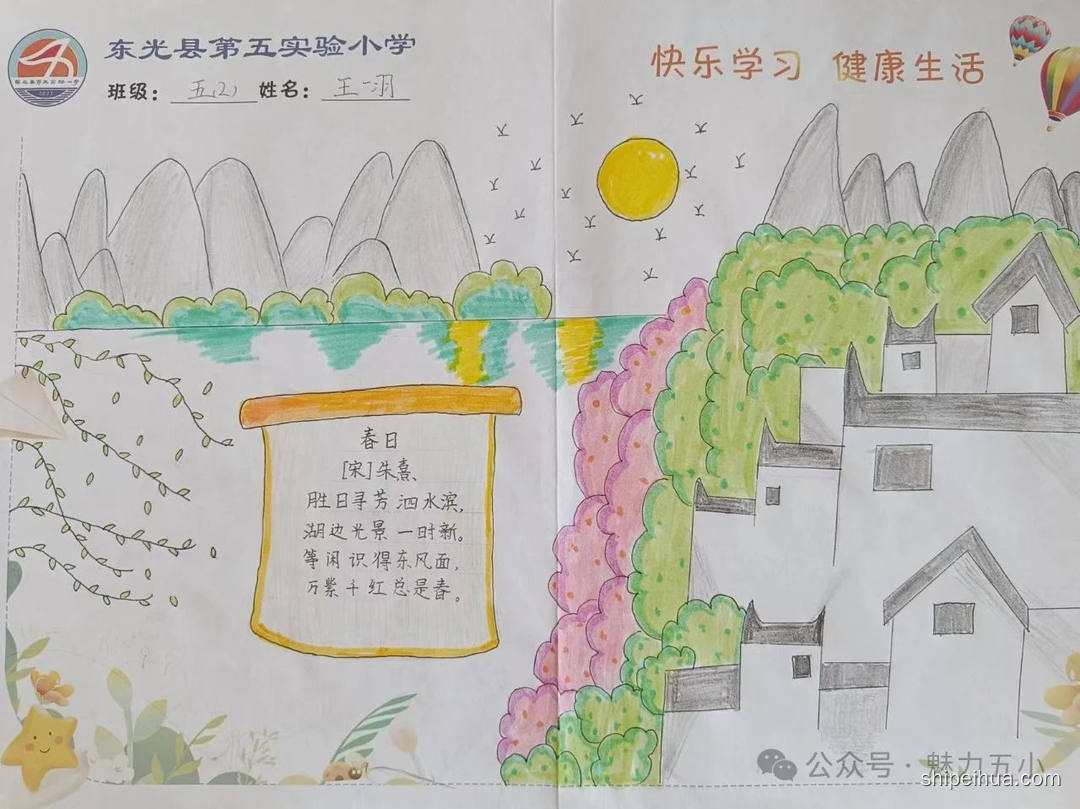 东光县第五实验小学
班级: 五(2) 姓名: 王一
快乐学习 健康生活
春日
[宋]朱熹、
胜日寻芳泗水滨,
湖边光景一时新。
等闲识得东风面,
万紫千红总是春。
公众号·魅力五小
shipeihua.com